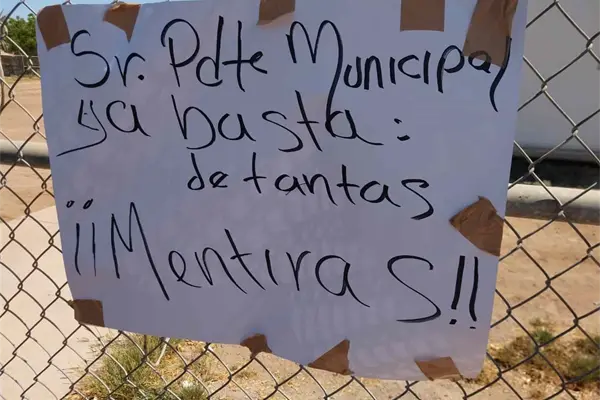 Sr. Pdte Municipal
ya basta:
de tantas
¡¡Mentiras!!